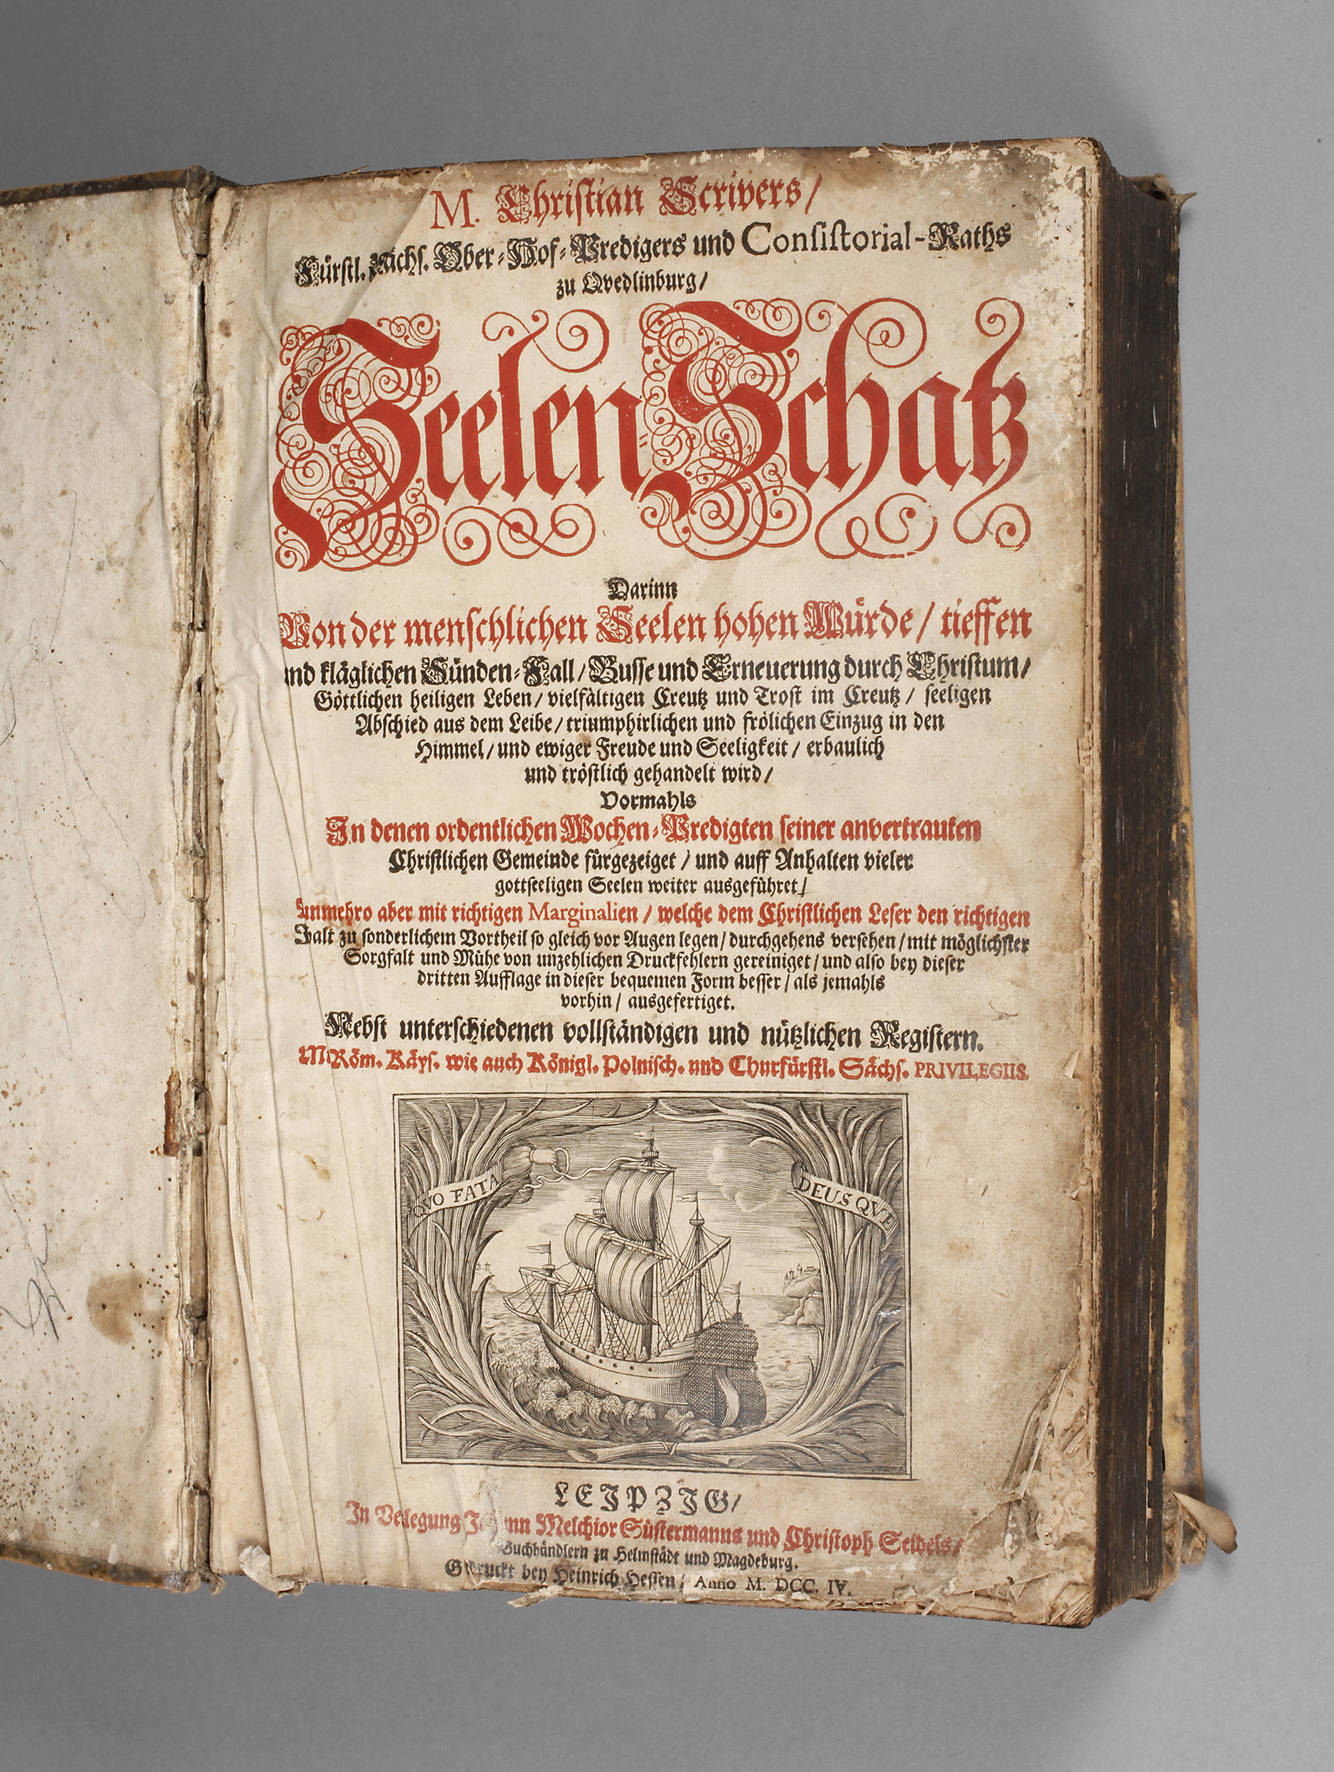 M. Christian Scrivers/
Fürstl. Sächs. Ober-Hof-Predigers und Consistorial-Raths
zu Qvedlinburg/
Seelen-Schatz
Darinn
Von der menschlichen Seelen hohen Würde/ tieffen
und kläglichen Sünden-Fall/ Busse und Erneuerung durch Christum/
Göttlichen heiligen Leben/ vielfältigen Creutz und Trost im Creutz/ seeligen
Abschied aus dem Leibe/ triumphirlichen und frölichen Einzug in den
Himmel/ und ewiger Freude und Seeligkeit/ erbaulich
und tröstlich gehandelt wird/
Vormahls
In denen ordentlichen Wochen-Predigten seiner anvertrauten
Christlichen Gemeinde fürgezeiget/ und auff Anhalten vieler
gottseeligen Seelen weiter ausgeführet/
Nunmehro aber mit richtigen Marginalien/ welche dem Christlichen Leser den richtigen
zu sonderlichem Vortheil so gleich vor Augen legen/ durchgehens versehen/ mit möglichster
Sorgfalt und Mühe von unzehlichen Druckfehlern gereiniget/ und also bey dieser
dritten Aufflage in dieser bequemen Form besser/ als jemahls
vorhin/ ausgefertiget.
Nebst unterschiedenen vollständigen und nützlichen Registern.
Röm. Käys. wie auch Königl. Polnisch. und Churfürstl. Sächs. PRIVILEGIIS.
QVO FATA
DEUS QVE
LEIPZIG/
In Verlegung Johann Melchior Süstermanns und Christoph Seidels/
Buchhändlern zu Helmstädt und Magdeburg.
Gedruckt bey Heinrich Hessen/ Anno M. DCC. IV.